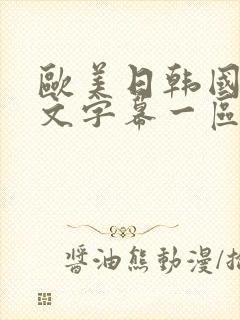 歐美日韓國
文字幕一區
醬油熊動漫/